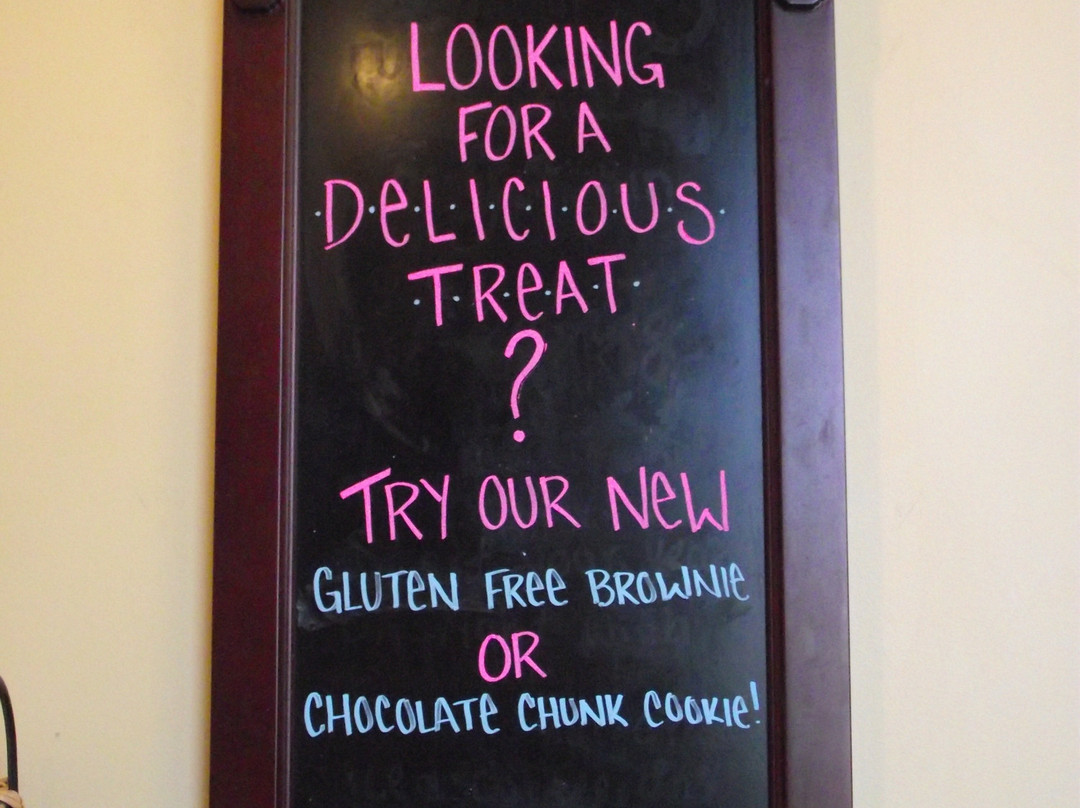 LOOKING
FOR A
·D·e·L·I·C·I·O·U·S·
·T·R·e·A·T·
?
TRY OUR NeW
GLUTeN FRee BROWNIe
OR
CHOCOLATe CHUNK COOKIe!